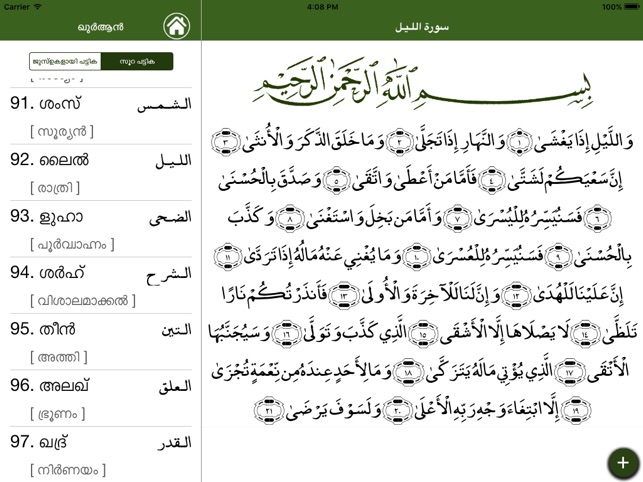 Carrier
4:08 PM
100%
ഖുർആൻ
سورة الليل
ജുസ്ഉകളായി പട്ടിക
സൂറ പട്ടിക
91. ശംസ് الشمس
[ സൂര്യൻ ]
92. ലൈൽ الليل
[ രാത്രി ]
93. ളുഹാ الضحى
[ പൂർവാഹ്നം ]
94. ശർഹ് الشرح
[ വിശാലമാക്കൽ ]
95. തീൻ التين
[ അത്തി ]
96. അലഖ് العلق
[ ഭ്രൂണം ]
97. ഖദ്ർ القدر
[ നിർണയം ]
بِسْمِ اللَّهِ الرَّحْمَٰنِ الرَّحِيمِ
وَاللَّيْلِ إِذَا يَغْشَىٰ ١ وَالنَّهَارِ إِذَا تَجَلَّىٰ ٢ وَمَا خَلَقَ الذَّكَرَ وَالْأُنثَىٰ ٣
إِنَّ سَعْيَكُمْ لَشَتَّىٰ ٤ فَأَمَّا مَنْ أَعْطَىٰ وَاتَّقَىٰ ٥ وَصَدَّقَ بِالْحُسْنَىٰ
٦ فَسَنُيَسِّرُهُ لِلْيُسْرَىٰ ٧ وَأَمَّا مَن بَخِلَ وَاسْتَغْنَىٰ ٨ وَكَذَّبَ
بِالْحُسْنَىٰ ٩ فَسَنُيَسِّرُهُ لِلْعُسْرَىٰ ١٠ وَمَا يُغْنِي عَنْهُ مَالُهُ إِذَا تَرَدَّىٰ ١١
إِنَّ عَلَيْنَا لَلْهُدَىٰ ١٢ وَإِنَّ لَنَا لَلْآخِرَةَ وَالْأُولَىٰ ١٣ فَأَنذَرْتُكُمْ نَارًا
تَلَظَّىٰ ١٤ لَا يَصْلَاهَا إِلَّا الْأَشْقَى ١٥ الَّذِي كَذَّبَ وَتَوَلَّىٰ ١٦ وَسَيُجَنَّبُهَا
الْأَتْقَى ١٧ الَّذِي يُؤْتِي مَالَهُ يَتَزَكَّىٰ ١٨ وَمَا لِأَحَدٍ عِندَهُ مِن نِّعْمَةٍ تُجْزَىٰ
١٩ إِلَّا ابْتِغَاءَ وَجْهِ رَبِّهِ الْأَعْلَىٰ ٢٠ وَلَسَوْفَ يَرْضَىٰ ٢١